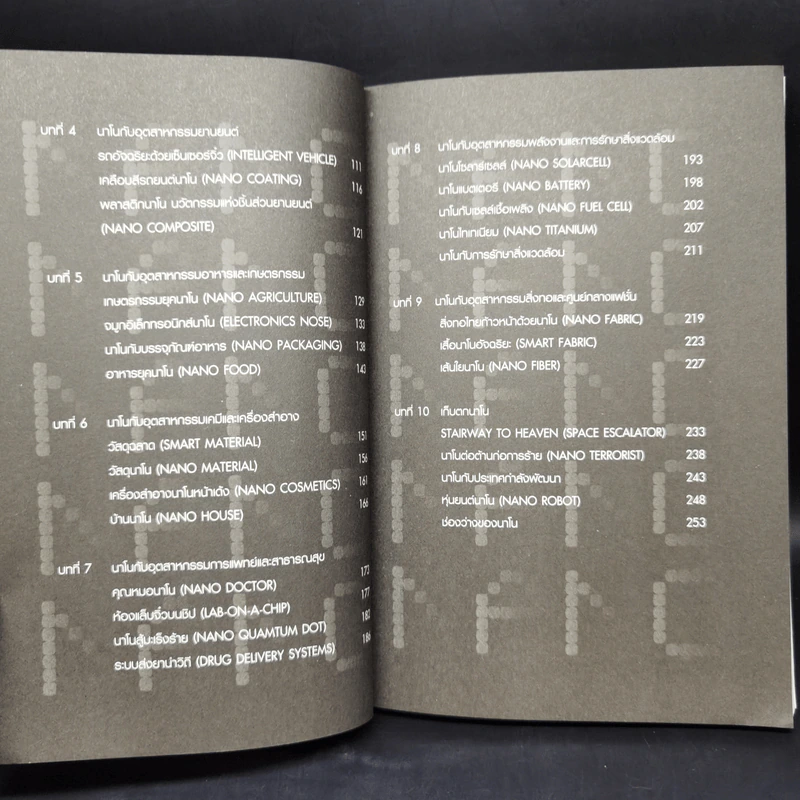 บทที่ 4 นาโนกับอุตสาหกรรมยานยนต์
รถอัจฉริยะด้วยเซ็นเซอร์จิ๋ว (INTELLIGENT VEHICLE) 111
เคลือบสีรถยนต์นาโน (NANO COATING) 116
พลาสติกนาโน นวัตกรรมแห่งชิ้นส่วนยานยนต์
(NANO COMPOSITE) 121
บทที่ 5 นาโนกับอุตสาหกรรมอาหารและเกษตรกรรม
เกษตรกรรมยุคนาโน (NANO AGRICULTURE) 129
จมูกอิเล็กทรอนิกส์นาโน (ELECTRONICS NOSE) 133
นาโนกับบรรจุภัณฑ์อาหาร (NANO PACKAGING) 138
อาหารยุคนาโน (NANO FOOD) 143
บทที่ 6 นาโนกับอุตสาหกรรมเคมีและเครื่องสำอาง
วัสดุฉลาด (SMART MATERIAL) 151
วัสดุนาโน (NANO MATERIAL) 156
เครื่องสำอางนาโนหน้าเด้ง (NANO COSMETICS) 161
บ้านนาโน (NANO HOUSE) 166
บทที่ 7 นาโนกับอุตสาหกรรมการแพทย์และสาธารณสุข
คุณหมอนาโน (NANO DOCTOR) 173
ห้องแล็บจิ๋วบนชิป (LAB-ON-A-CHIP) 177
นาโนสู้มะเร็งร้าย (NANO QUAMTUM DOT) 182
ระบบส่งยานำวิถี (DRUG DELIVERY SYSTEMS) 186
บทที่ 8 นาโนกับอุตสาหกรรมพลังงานและการรักษาสิ่งแวดล้อม
นาโนโซลาร์เซลล์ (NANO SOLARCELL) 193
นาโนแบตเตอรี (NANO BATTERY) 198
นาโนกับเซลล์เชื้อเพลิง (NANO FUEL CELL) 202
นาโนไทเทเนียม (NANO TITANIUM) 207
นาโนกับการรักษาสิ่งแวดล้อม 211
บทที่ 9 นาโนกับอุตสาหกรรมสิ่งทอและศูนย์กลางแฟชั่น
สิ่งทอไทยก้าวหน้าด้วยนาโน (NANO FABRIC) 219
เสื้อนาโนอัจฉริยะ (SMART FABRIC) 223
เส้นใยนาโน (NANO FIBER) 227
บทที่ 10 เก็บตกนาโน
STAIRWAY TO HEAVEN (SPACE ESCALATOR) 233
นาโนต่อต้านก่อการร้าย (NANO TERRORIST) 238
นาโนกับประเทศกำลังพัฒนา 243
หุ่นยนต์นาโน (NANO ROBOT) 248
ช่องว่างของนาโน 253